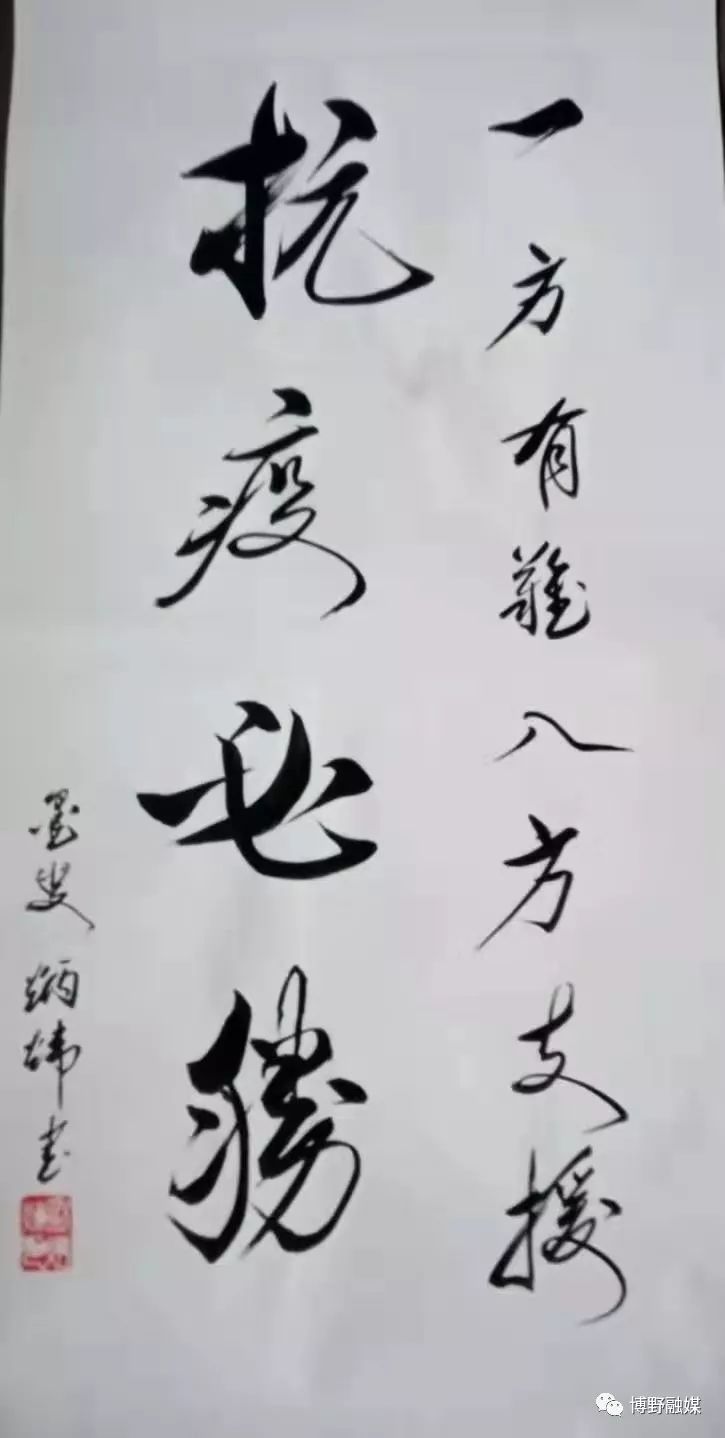 一方有難八方支援
抗疫必勝
墨叟炳煒书
博野融媒